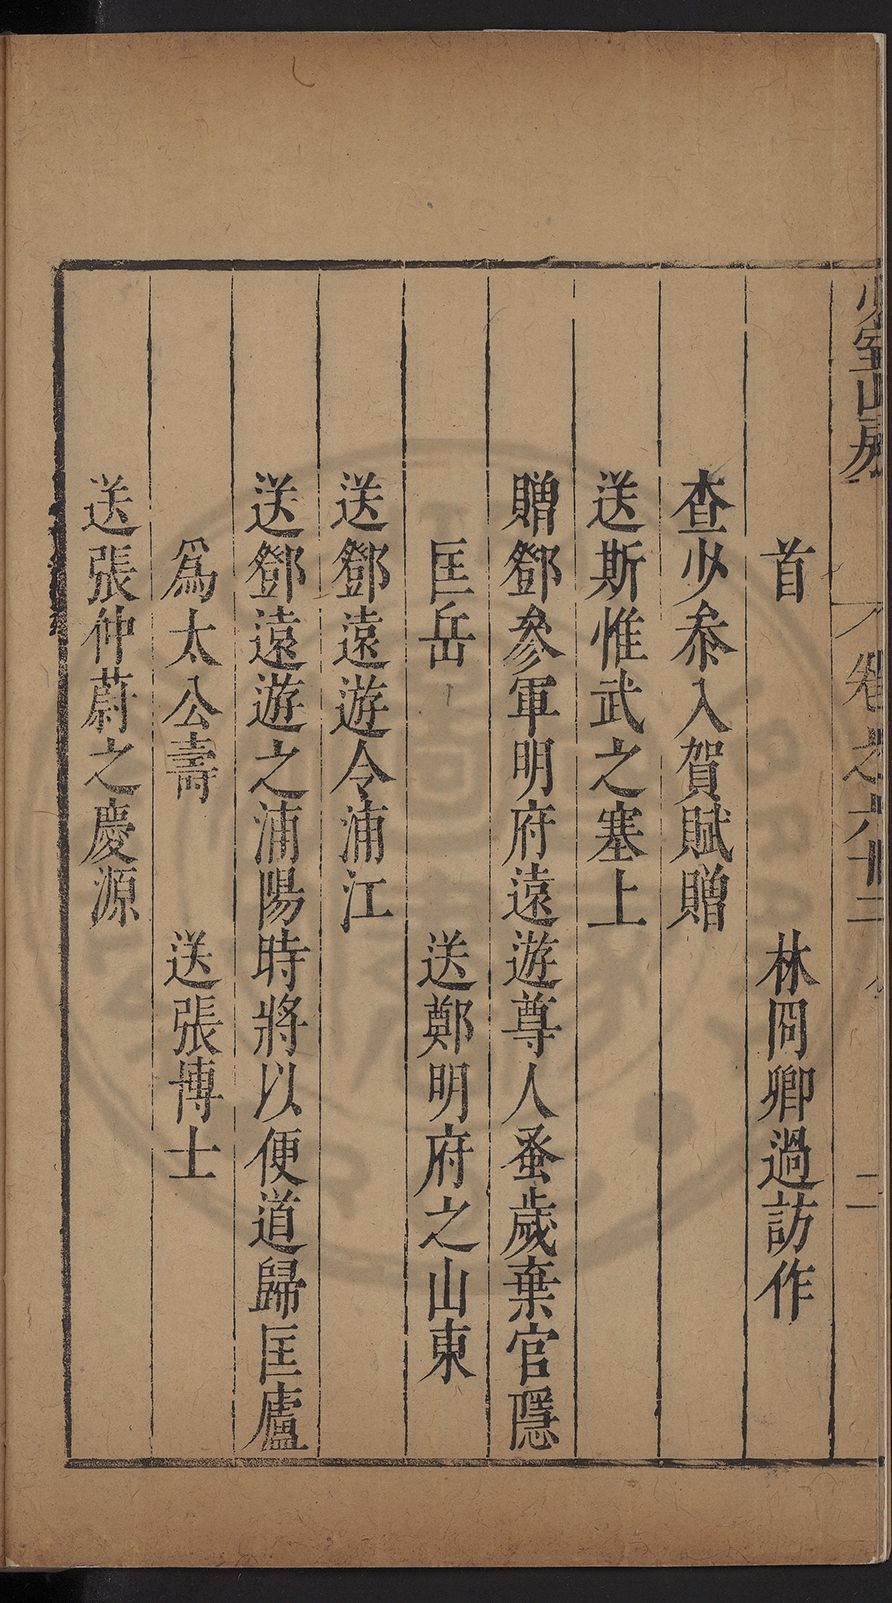 少室山房
卷之六十二
二
首　林冏卿過訪作
查少叅入賀賦贈
送斯惟武之塞上
贈鄧參軍明府遠遊尊人蚤歲棄官隱
匡岳　送鄭明府之山東
送鄧遠遊令浦江
送鄧遠遊之浦陽時將以便道歸匡廬
爲太公壽　送張博士
送張仲蔚之慶源